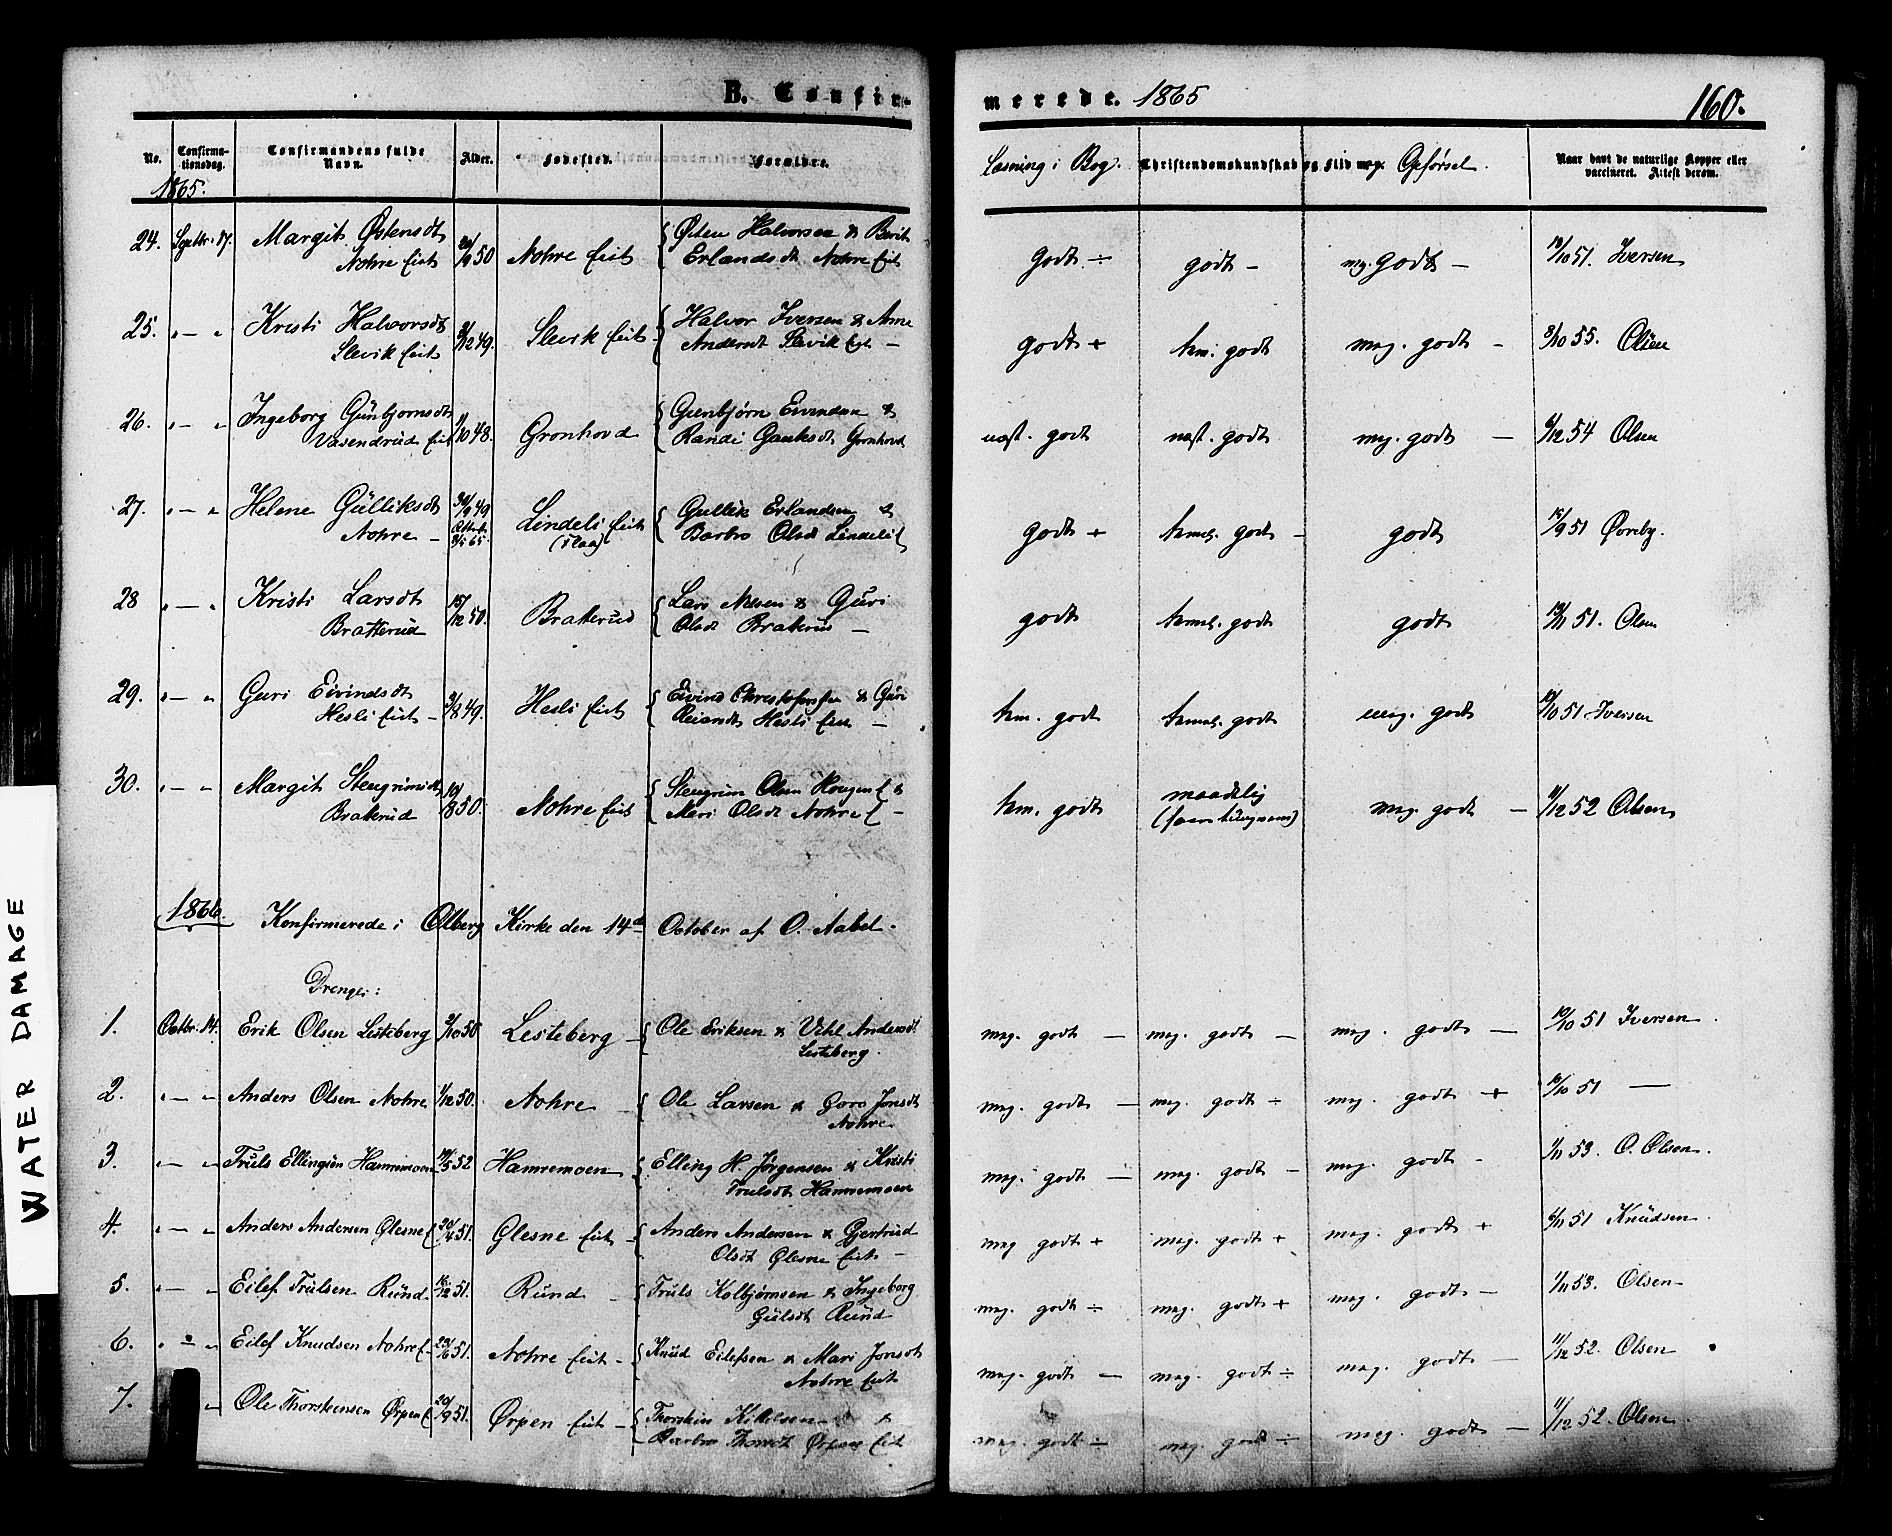 B. Confir-
merede. 1865
160.
No.
Confirma-
tionsdag.
Confirmandens fulde
Navn.
Alder.
Fødested.
Forældre.
Læsning i Bog.
Christendomskundskab og Flid
Opførsel.
Naar havt de naturlige Kopper eller
vaccineret. Attest derom.
1865.
24. Septbr. 17. Margit Østensdt
Nohre eiet
50 Nohre eiet
Østen Halvorsen & Berit
Erlandsdt Nohre eiet
godt ÷ godt - mg. godt - 10/10 51. Iversen
25. " — " Kristi Halvorsdt
Slevik eiet
3/12 49. Slevik eiet
Halvor Iversen & Anne
Andersdt Slevik
godt + tem. godt meg. godt - 8/10 55. Olsen
26. " — " Ingeborg Günbjornsdt
Vasendrud eiet
1/10 48. Gronhovd
Gunbjørn Eivindsen &
Randi Gauksdt Gronhovd
næst. godt næst. godt meg. godt — 6/12 54 Olsen
27. " — " Helene Gülliksdt
Nohre —
30/9 49 Lindeli eiet
(Flaa)
Gullik Erlandsen &
Barbro Olsdt Lindeli
godt + temel. godt - godt 15/9 51 Ørreby.
28 " — " Kristi Larsdt
Bratterud
15/12 50. Bratterud
Lars Nilsen & Guri
Olsdt Bratterud —
godt temel. godt godt 51. Olsen
29. " — " Guri Eivindsdt
Hesli eiet —
3/8 49. Hesli eiet
Eivind Christofersen & Guri
Hesli eiet —
tem. godt temel. godt meg. godt 10/10 51 Iversen
30. " — " Margit Stengrimsdt
Bratterud
10/8 50. Nohre eiet
Stengrim Olsen Haugen &
Mari Olsdt Nohre —
tem. godt maadelig meg. godt — 11/12 52 Olsen
1866. Konfirmerede i Olberg Kirke den 14de October af O. Aabel.
Drenge:
1. Octbr. 14. Erik Olsen Lesteberg 3/10 50 Lesteberg —
Ole Eriksen & Andersdt
Lesteberg.
meg. godt — meg. godt — meg. godt — 10/10 51 Iversen.
2. " — " Anders Olsen Nohre 1/12 50. Nohre —
Ole Larsen & Goro Jonsdt
Nohre
meg. godt — meg. godt ÷ meg. godt + 10/10 51 —
3. " — " Truls Ellingsen Hamremoen 19/5 52 Hamremoen
Elling H. Jørgensen & Kristi
Trulsdt Hamremoen
meg. godt — meg. godt — meg. godt - 1/11 53. O. Olsen.
4. " — " Anders Andersen Glesne 20/4 51. Glesne eiet —
Anders Andersen & Gjertrud
Olsdt Glesne eiet —
meg godt + meg. godt + meg. godt + 6/11 51 Knüdsen.
5. " — " Eilef Trülsen Ründ 16/12 51. Ründ —
Truls Kolbjørnsen & Ingeborg
Gülsdt Ründ
meg. godt ÷ meg. godt + meg. godt — 1/11 53. Olsen
6. " — " Eilef Knudsen Nohre 23/6 51. Nohre eiet —
Knud Eilefsen & Mari Jonsdt
Nohre eiet
meg. godt — meg. godt ÷ meg. godt — 11/12 52. Olsen
7. " Ole Thorstensen Ørpen 20/9 51. Ørpen eiet —
Thorstein Kittelsen &
Barbro Ørpen eiet
meg. godt ÷ meg. godt ÷ meg. godt — 11/12 52. Olsen.
WATER DAMAGE